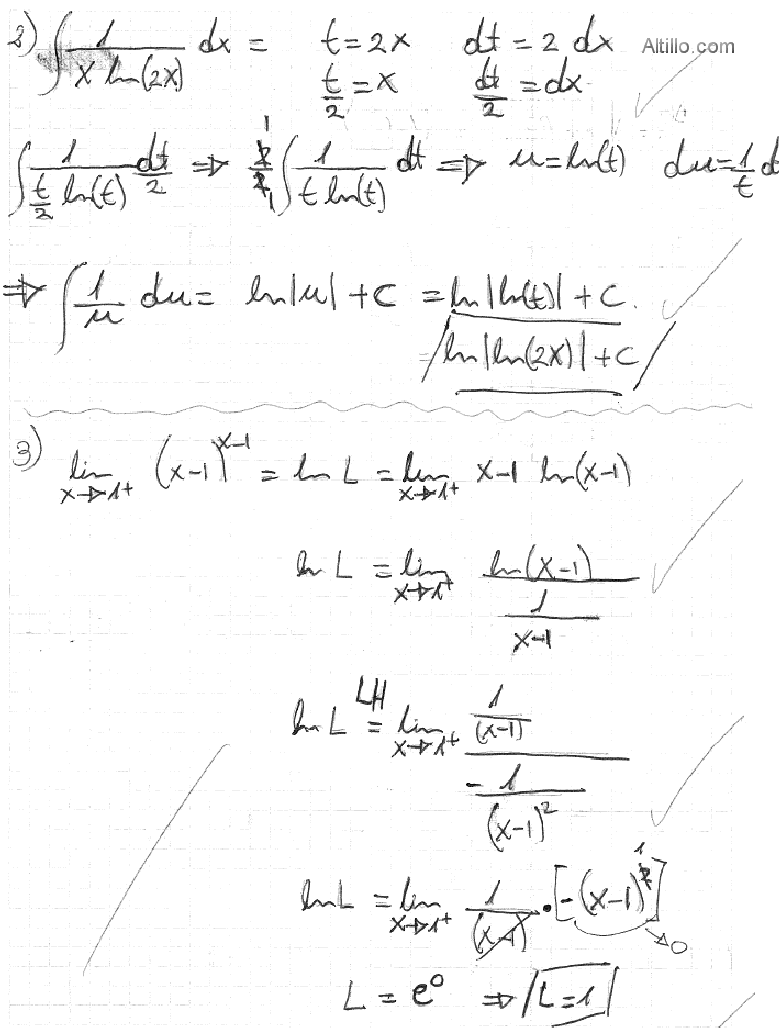 2) ∫ 1/(x ln(2x)) dx = t = 2x dt = 2 dx Altillo.com
t/2 = x dt/2 = dx
∫ 1/(t/2 ln(t)) dt/2 ⇒ 2/2 ∫ 1/(t ln(t)) dt ⇒ u = ln(t) du = 1/t dt
⇒ ∫ 1/u du = ln|u| + C = ln|ln(t)| + C.
= ln|ln(2x)| + C
3) lim x→1+ (x-1)^(x-1) = ln L = lim x→1+ x-1 ln(x-1)
ln L = lim x→1+ ln(x-1) / (1/(x-1))
ln L LH= lim x→1+ (1/(x-1)) / (-1/(x-1)^2)
ln L = lim x→1+ 1/(x-1) · [-(x-1)^2] 1 → 0
L = e^0 ⇒ L = 1